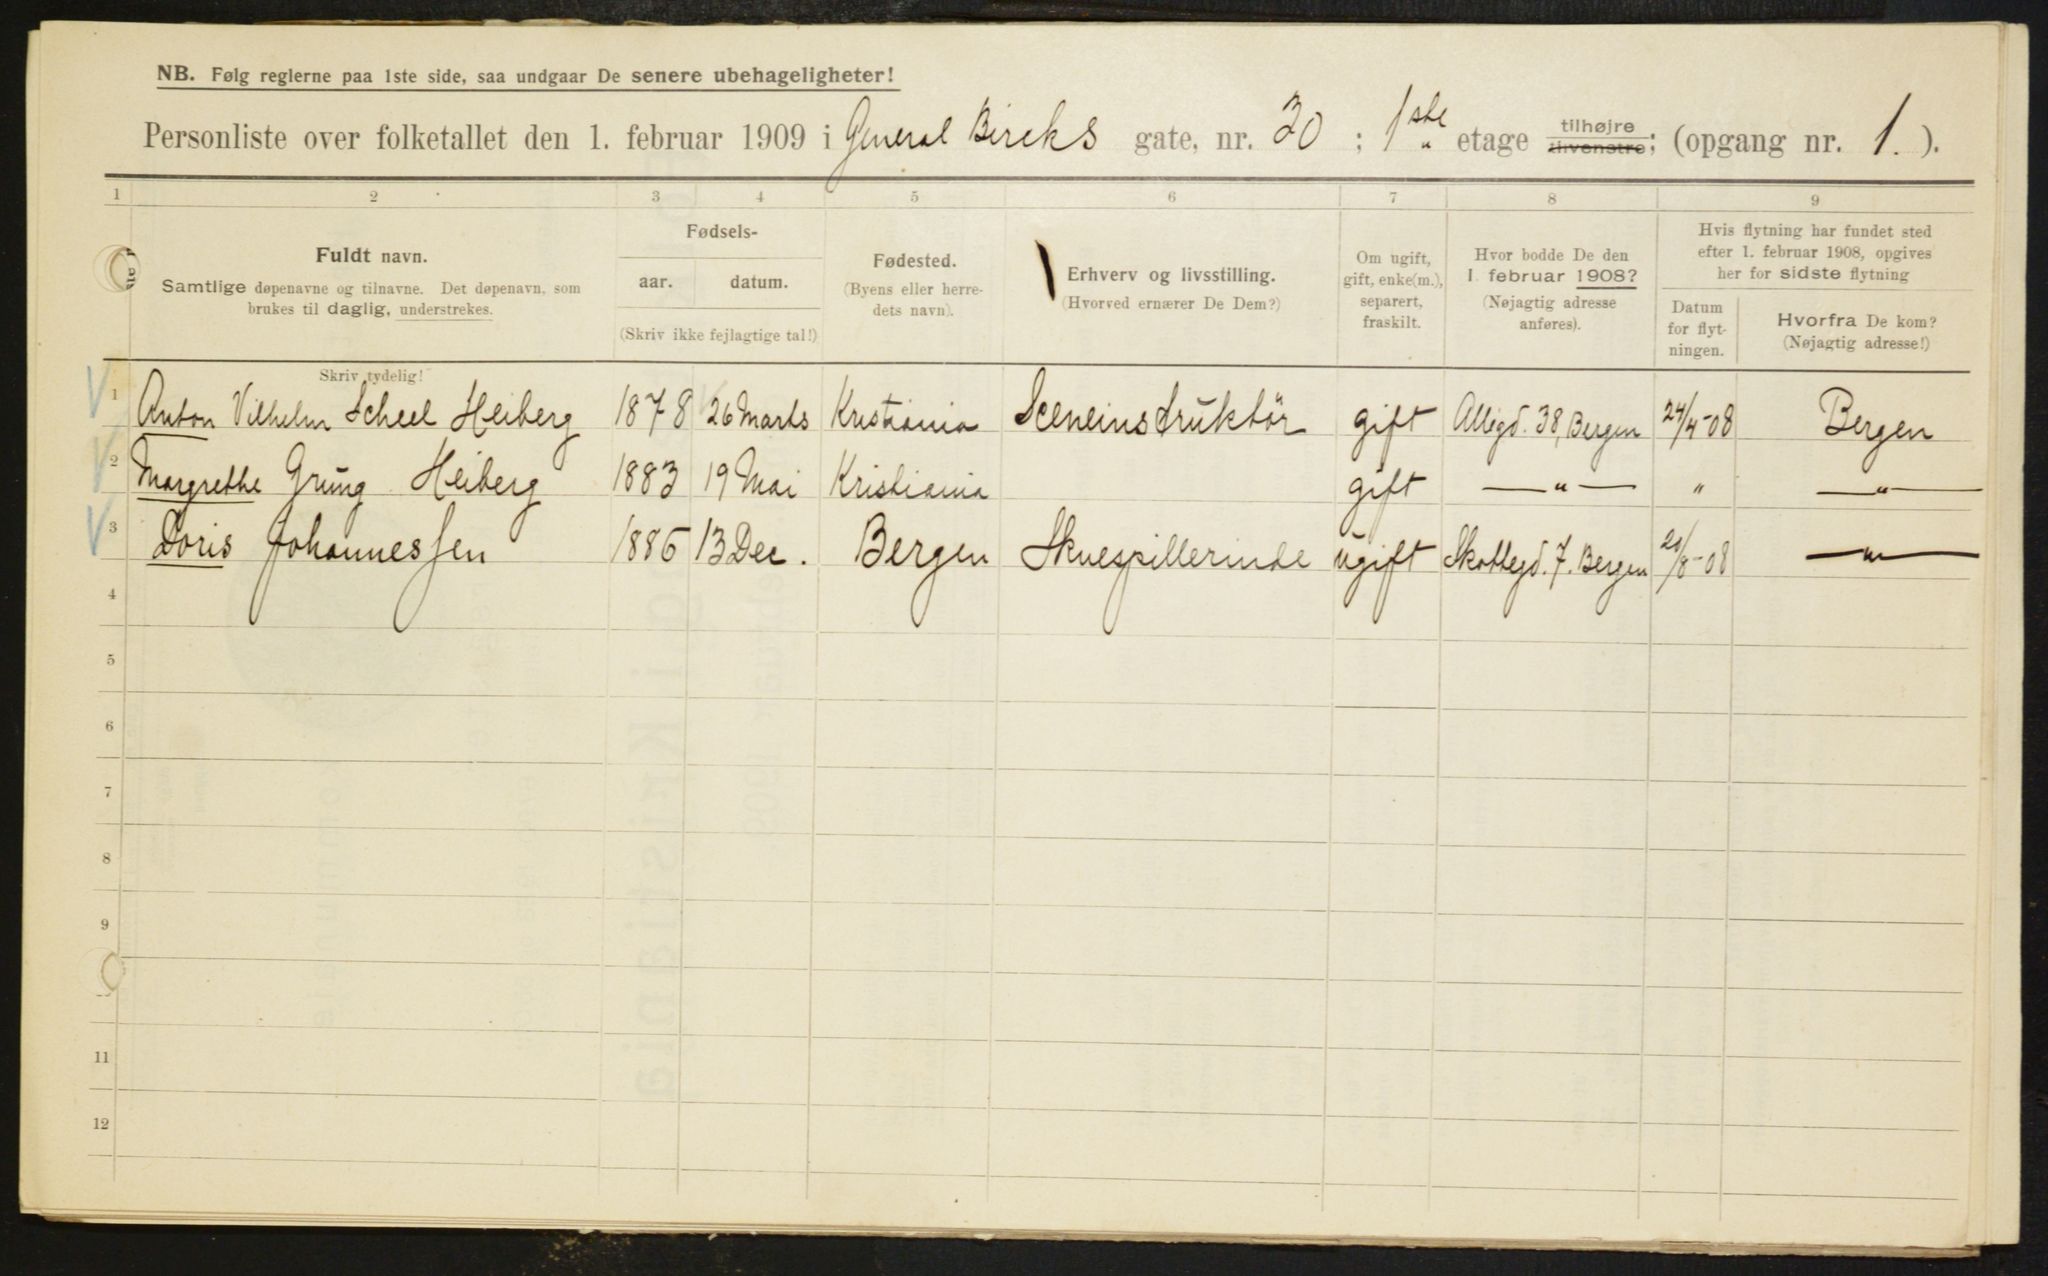 NB. Følg reglerne paa 1ste side, saa undgaar De senere ubehageligheter!
Personliste over folketallet den 1. februar 1909 i General Bircks gate, nr. 20 ; 1ste etage tilhøjre tilvenstre; (opgang nr. 1. ).
1 2 3 4 5 6 7 8 9
Fuldt navn.
Samtlige døpenavne og tilnavne. Det døpenavn, som
brukes til daglig, understrekes.
Fødsels-
aar. datum.
(Skriv ikke fejlagtige tal!)
Fødested.
(Byens eller herre-
dets navn).
Erhverv og livsstilling.
(Hvorved ernærer De Dem?)
Om ugift,
gift, enke(m.),
separert,
fraskilt.
Hvor bodde De den
1. februar 1908?
(Nøjagtig adresse
anføres).
Hvis flytning har fundet sted
efter 1. februar 1908, opgives
her for sidste flytning
Datum
for flyt-
ningen.
Hvorfra De kom?
(Nøjagtig adresse!)
Skriv tydelig!
1 Anton Vilhelm Scheel Heiberg 1878 26 Marts Kristiania Sceneinstruktör gift Allégd. 38, Bergen 24/4-08 Bergen
2 Margrethe Grung Heiberg 1883 19 Mai Kristiania gift — " — " — " —
3 Doris Johannessen 1886 13 Dec. Bergen Skuespillerinde ugift Skottegd. 7. Bergen 20/8-08 — " —
4
5
6
7
8
9
11
12